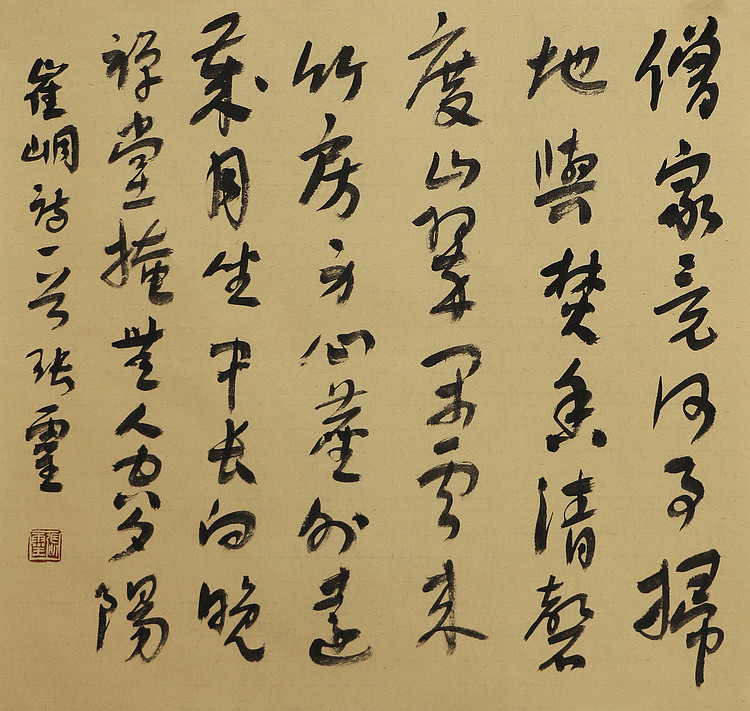 僧家竟何事掃
地與焚香清磬
度山翠閑雲来
竹房身心塵外遠
歲月坐中长向晚
禅堂掩無人空夕陽
崔峒詩一首张靈
張靈